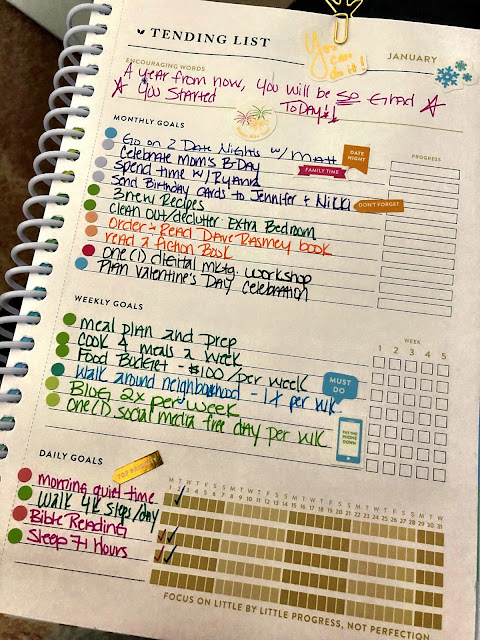 TENDING LIST
You can do it!
JANUARY
ENCOURAGING WORDS
A year from now, you will be so Glad
You Started TODAY!
MONTHLY GOALS
PROGRESS
Go on 2 Date Nights w/ Matt
DATE NIGHT
Celebrate Mom's B-Day
FAMILY TIME
Spend time w/ Ryann
Send Birthday cards to Jennifer + Nikki
DON'T FORGET
3 new Recipes
Clean out/declutter Extra Bedroom
Order + Read Dave Ramsey book
read a fiction Book
one (1) digital mktg. workshop
Plan Valentine's Day celebration
WEEKLY GOALS
WEEK
1 2 3 4 5
meal plan and prep
Cook 4 meals a week
Food Budget - $100/per week
MUST DO
Walk around neighborhood - 1x per wk.
Blog 2x per week
PUT THE PHONE DOWN
one (1) social media free day per wk
DAILY GOALS
TOP PRIORITY
M T W T F S S M T W T F S S M T W T F S S M T W T F S S M T W
1 2 3 4 5 6 7 8 9 10 11 12 13 14 15 16 17 18 19 20 21 22 23 24 25 26 27 28 29 30 31
Morning quiet time
Walk 4k steps/day
Bible Reading
Sleep 7+ Hours
FOCUS ON LITTLE BY LITTLE PROGRESS, NOT PERFECTION